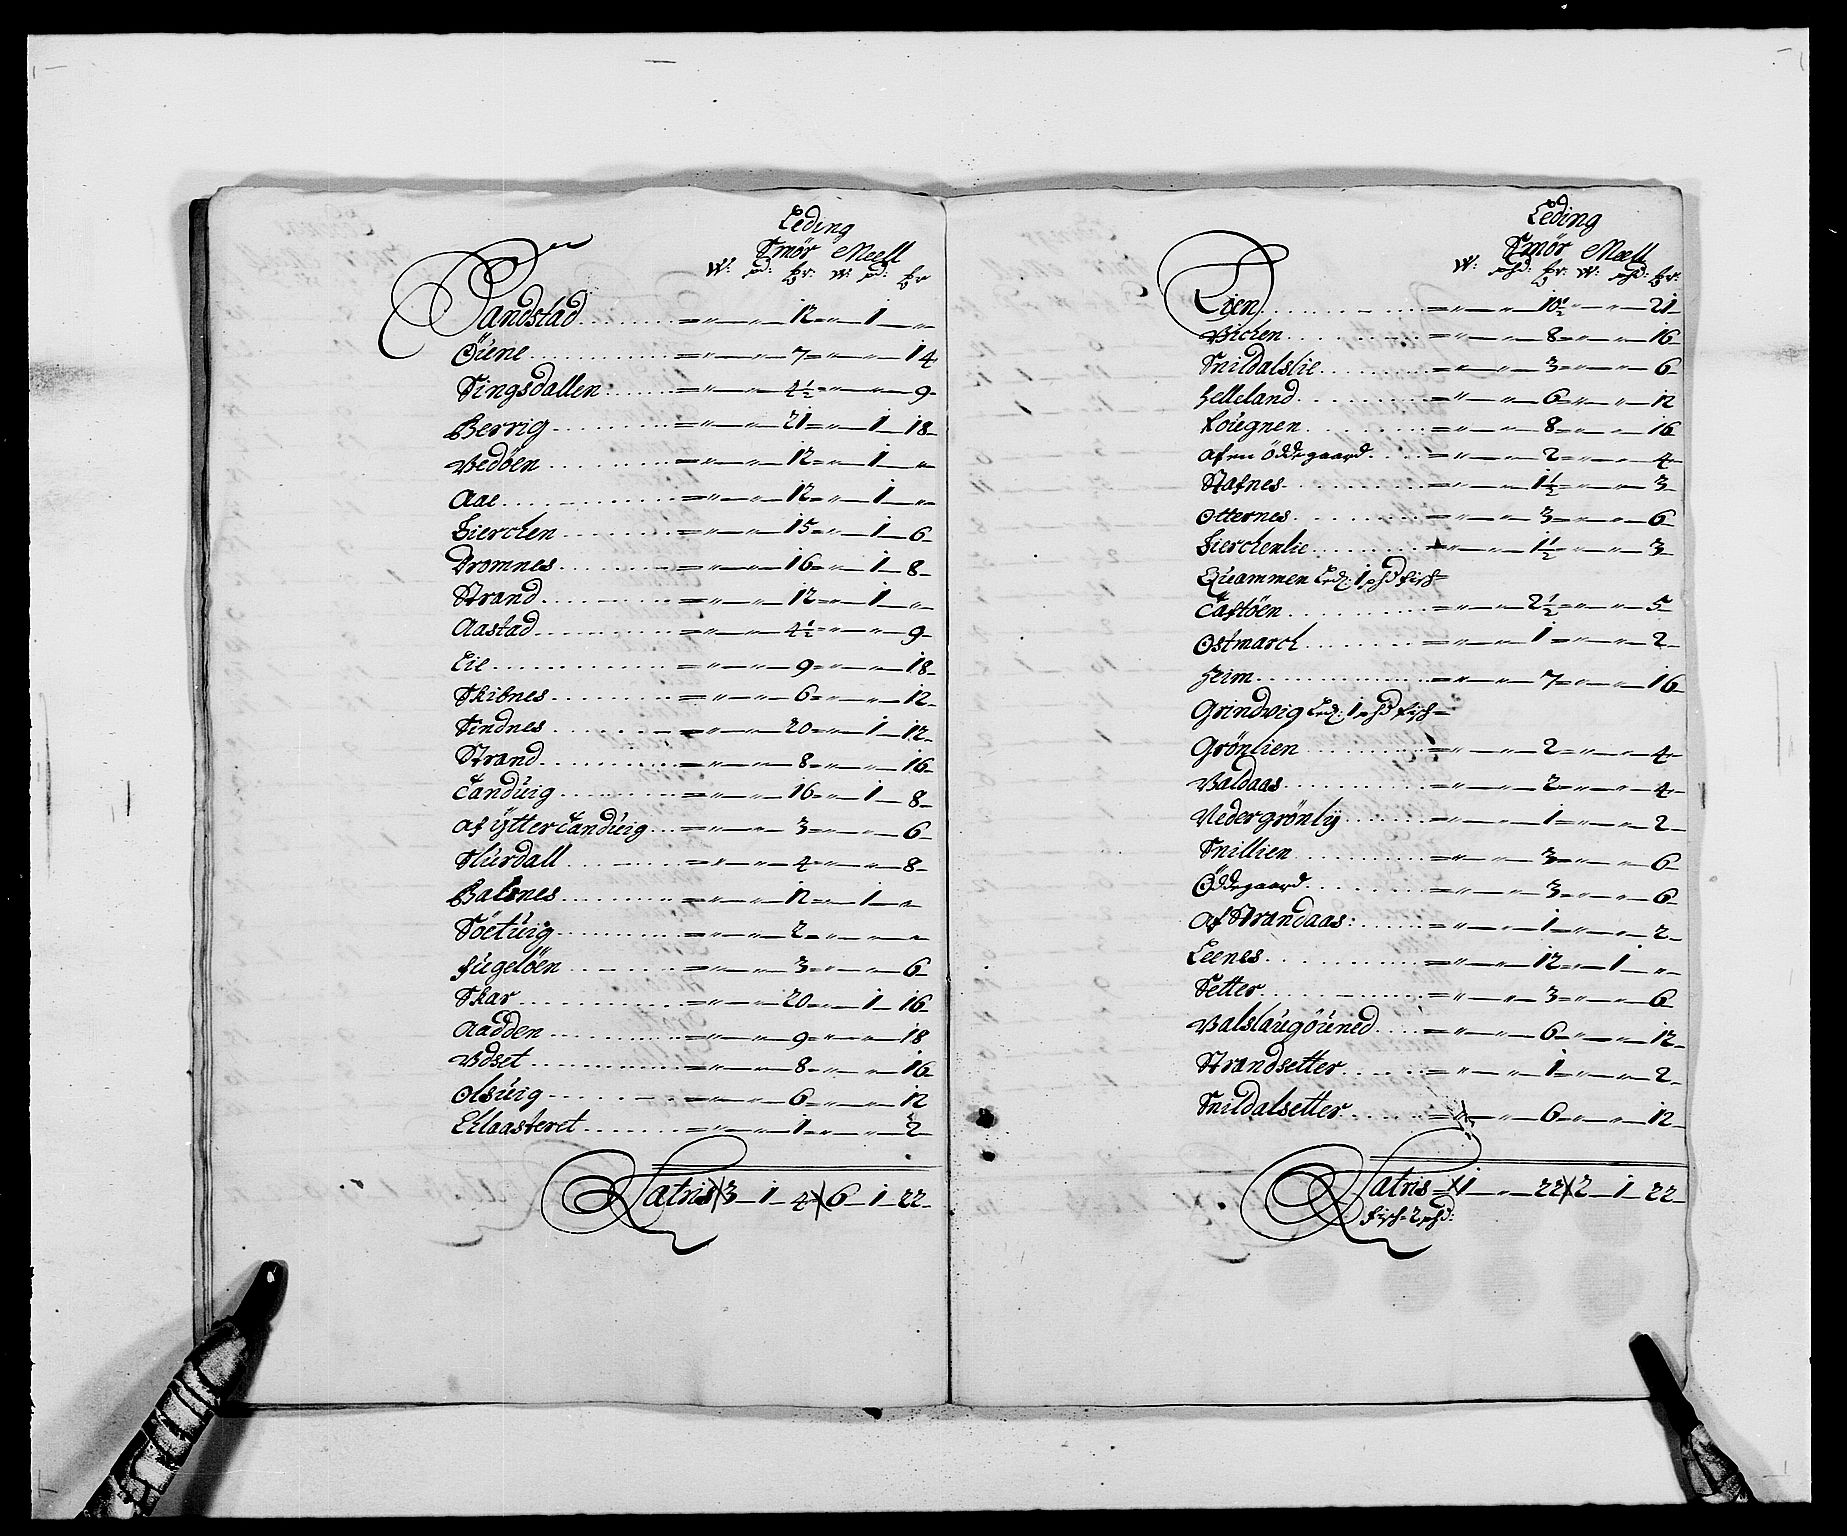 Leding
Smör Meell
W: pd: W: pd:
Sandstad = " — " — 12 = " — 1 — "
Öiene = " — " — 7 = " — " — 14
Singsdallen = " — " — 4½ = " — " — 9
Berrig = " — " — 21 = " — 1 — 18
Vedöen = " — " — 12 = " — 1 — "
Aae = " — " — 12 = " — 1 — "
Kierchen = " — " — 15 = " — 1 — 6
Dromnes = " — " — 16 = " — 1 — 8
Strand = " — " — 12 = " — 1 — "
Aastad = " — " — 4½ = " — " — 9
Lie = " — " — 9 = " — " — 18
Skibnes = " — " — 6 = " — " — 12
Sindnes = " — " — 20 = " — 1 — 12
Strand = " — " — 8 = " — " — 16
Tanduig = " — " — 16 = " — 1 — 8
af ÿtter Tanduig = " — " — 3 = " — " — 6
Slurdall = " — " — 4 = " — " — 8
Balsnes = " — " — 12 = " — 1 — "
Söetuig = " — " — 2 = " — " — "
Fugelöen = " — " — 3 = " — " — 6
Skar = " — " — 20 = " — 1 — 16
Aadden = " — " — 9 = " — " — 18
Udset = " — " — 8 = " — " — 16
Olsuig = " — " — 6 = " — " — 12
Eklaasteret = " — " — 1 = " — " — 2
Latris 3 — 1 — 4 6 — 1 — 22
Leding
Smör Meell
W: phd: W: phd:
Lien = " — " — 10½ = " — " — 21
Virchen = " — " — 8 = " — " — 16
Snildalslie = " — " — 3 = " — " — 6
Helleland = " — " — 6 = " — " — 12
Kouegnen = " — " — 8 = " — " — 16
af en Öddegaard = " — " — 2 = " — " — 4
Stafnes = " — " — 1½ = " — " — 3
Otternes = " — " — 3 = " — " — 6
Kierchenlie = " — " — 1½ = " — " — 3
Quammen Led: 1 phd fisch =
Taftöen = " — " — 2½ = " — " — 5
Ostmarch = " — " — 1 = " — " — 2
Heim = " — " — 7 = " — " — 16
Grindvig Led: 1 phd fisch =
Grönlien = " — " — 2 = " — " — 4
Valdaas = " — " — 2 = " — " — 4
Nedergrönlÿ = " — " — 1 = " — " — 2
Snillien = " — " — 3 = " — " — 6
Öddegaard = " — " — 3 = " — " — 6
af Strandaas: = " — " — 1 = " — " — 2
Leenes = " — " — 12 = " — 1 — "
Setter = " — " — 3 = " — " — 6
Valslaugöuned = " — " — 6 = " — " — 12
Strandsetter = " — " — 1 = " — " — 2
Snildalsetter = " — " — 6 = " — " — 12
Latris 1 — " — 22 2 — 1 — 22
fisch = 2 phd: